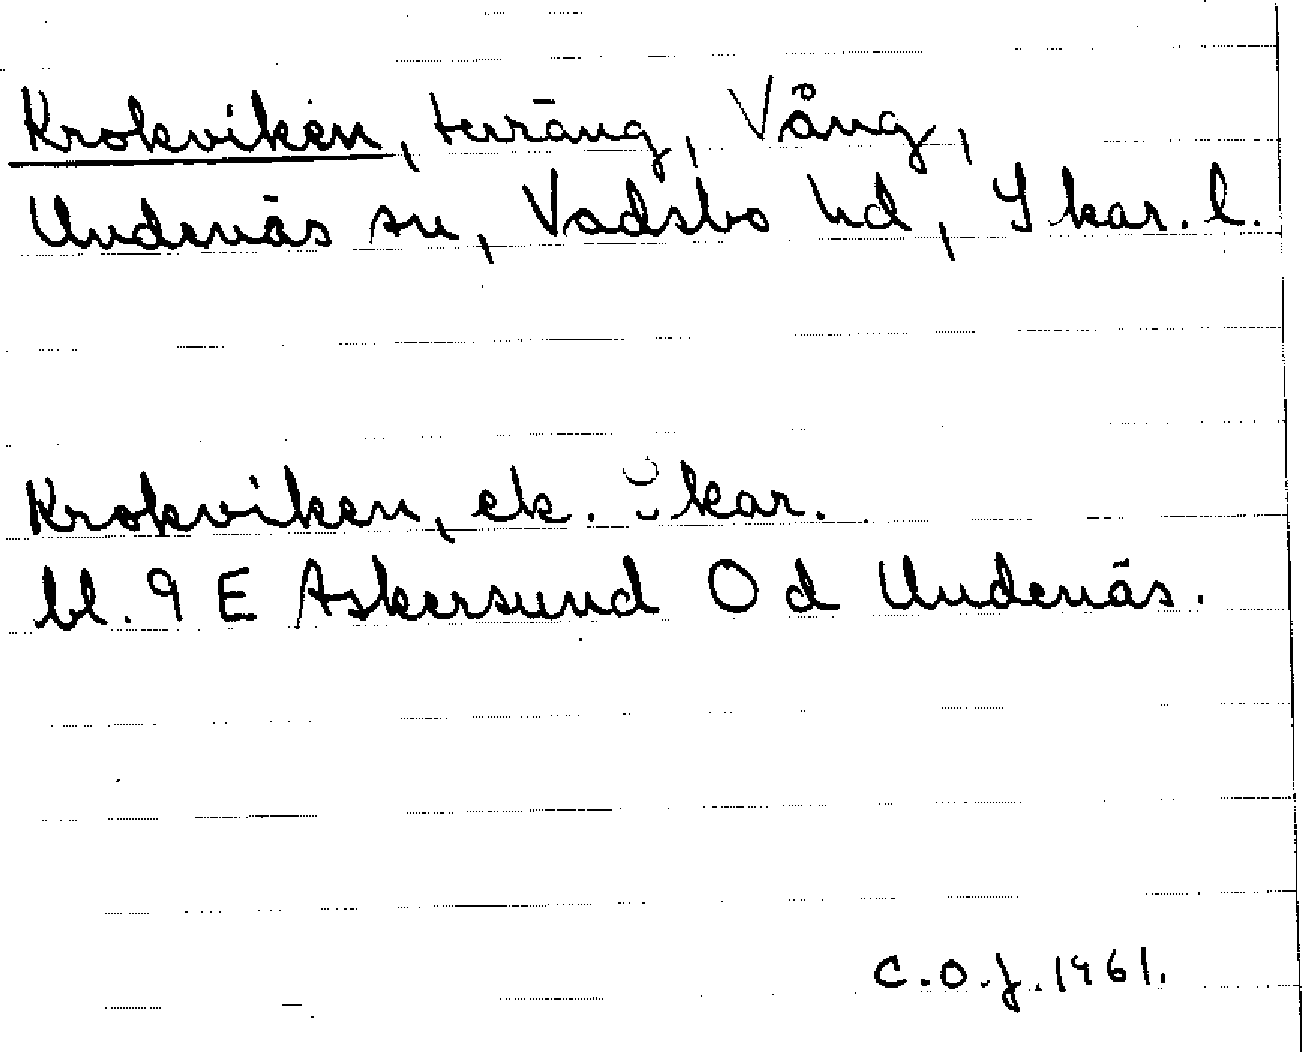 Krokviken, terräng, Vång,
Undenäs sn, Vadsbo hd, Skar. l.
Krokviken, ek. kar.
bl. 9 E Askersund O d Undenäs.
C.O.J. 1961.